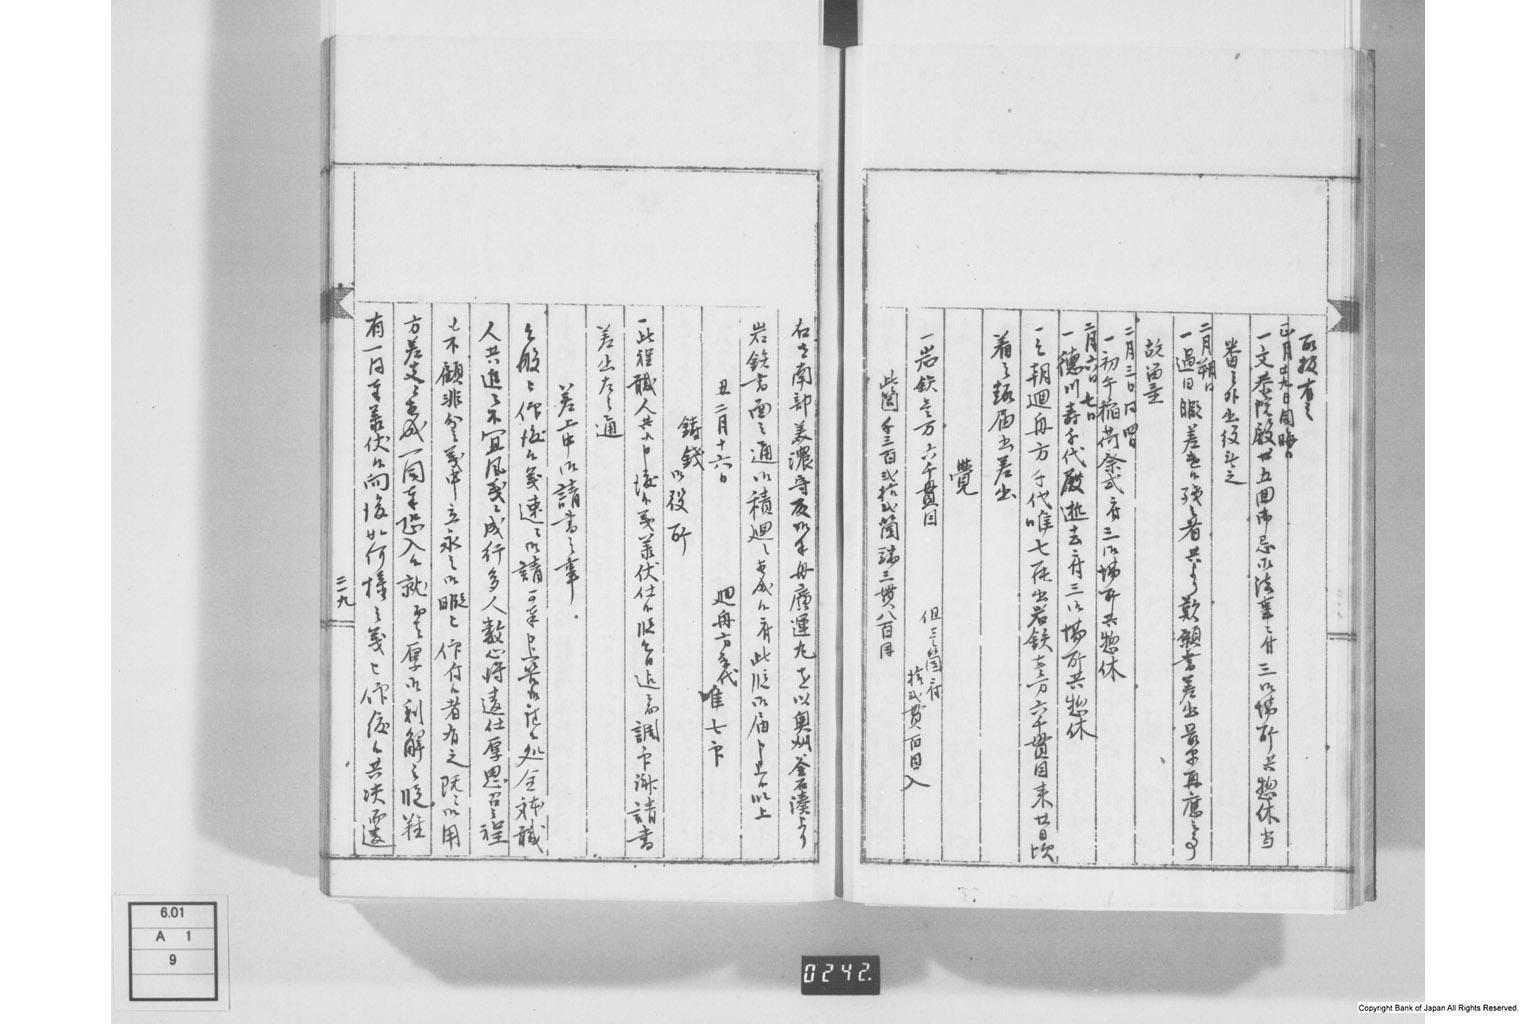 取扱有之
正月廿九日同晦日
一文恭院殿廿五回御忌御法事ニ付三御場所共惣休当
番之外出役無之
二月朔日
一過日暇差出候残之者共より歎願書差出
故留置
二月三日同四日
一初午稲荷祭式ニ付三御場所共惣休
二月六日七日
一徳川寿千代殿逝去ニ付三御場所共惣休
一今朝廻舟方手代唯七罷出岩鉄壱万六千貫目来廿日頃
着之趣届書差出
覚
一岩鉄壱万六千貫目
但壱箇ニ付
拾弐貫百目入
此箇千三百弐拾弐箇 端三貫八百目
右者南部美濃守殿御手舟広運丸を以奥州釜石湊より
岩鉄書面之通御積廻ニ相成候ニ付此段御届申上候以上
丑二月十六日
廻舟方手代
唯七
鋳銭
御役所
一此程職人共江申渡候義承伏仕候段今日迄ニ調印済請書
差出左之通
差上申御請書之事
人共進ミ不宜風義ニ成行多人数
も不顧非分之義申立永之御暇被仰付候者有之既ニ御用
方差支ニも相成一同奉恐入候就而者厚御利解之段難
有一同奉承伏候向後如何様之義被仰渡候共決而違
二九
6.01
A 1
9
0242.
Copyright Bank of Japan All Rights Reserved.